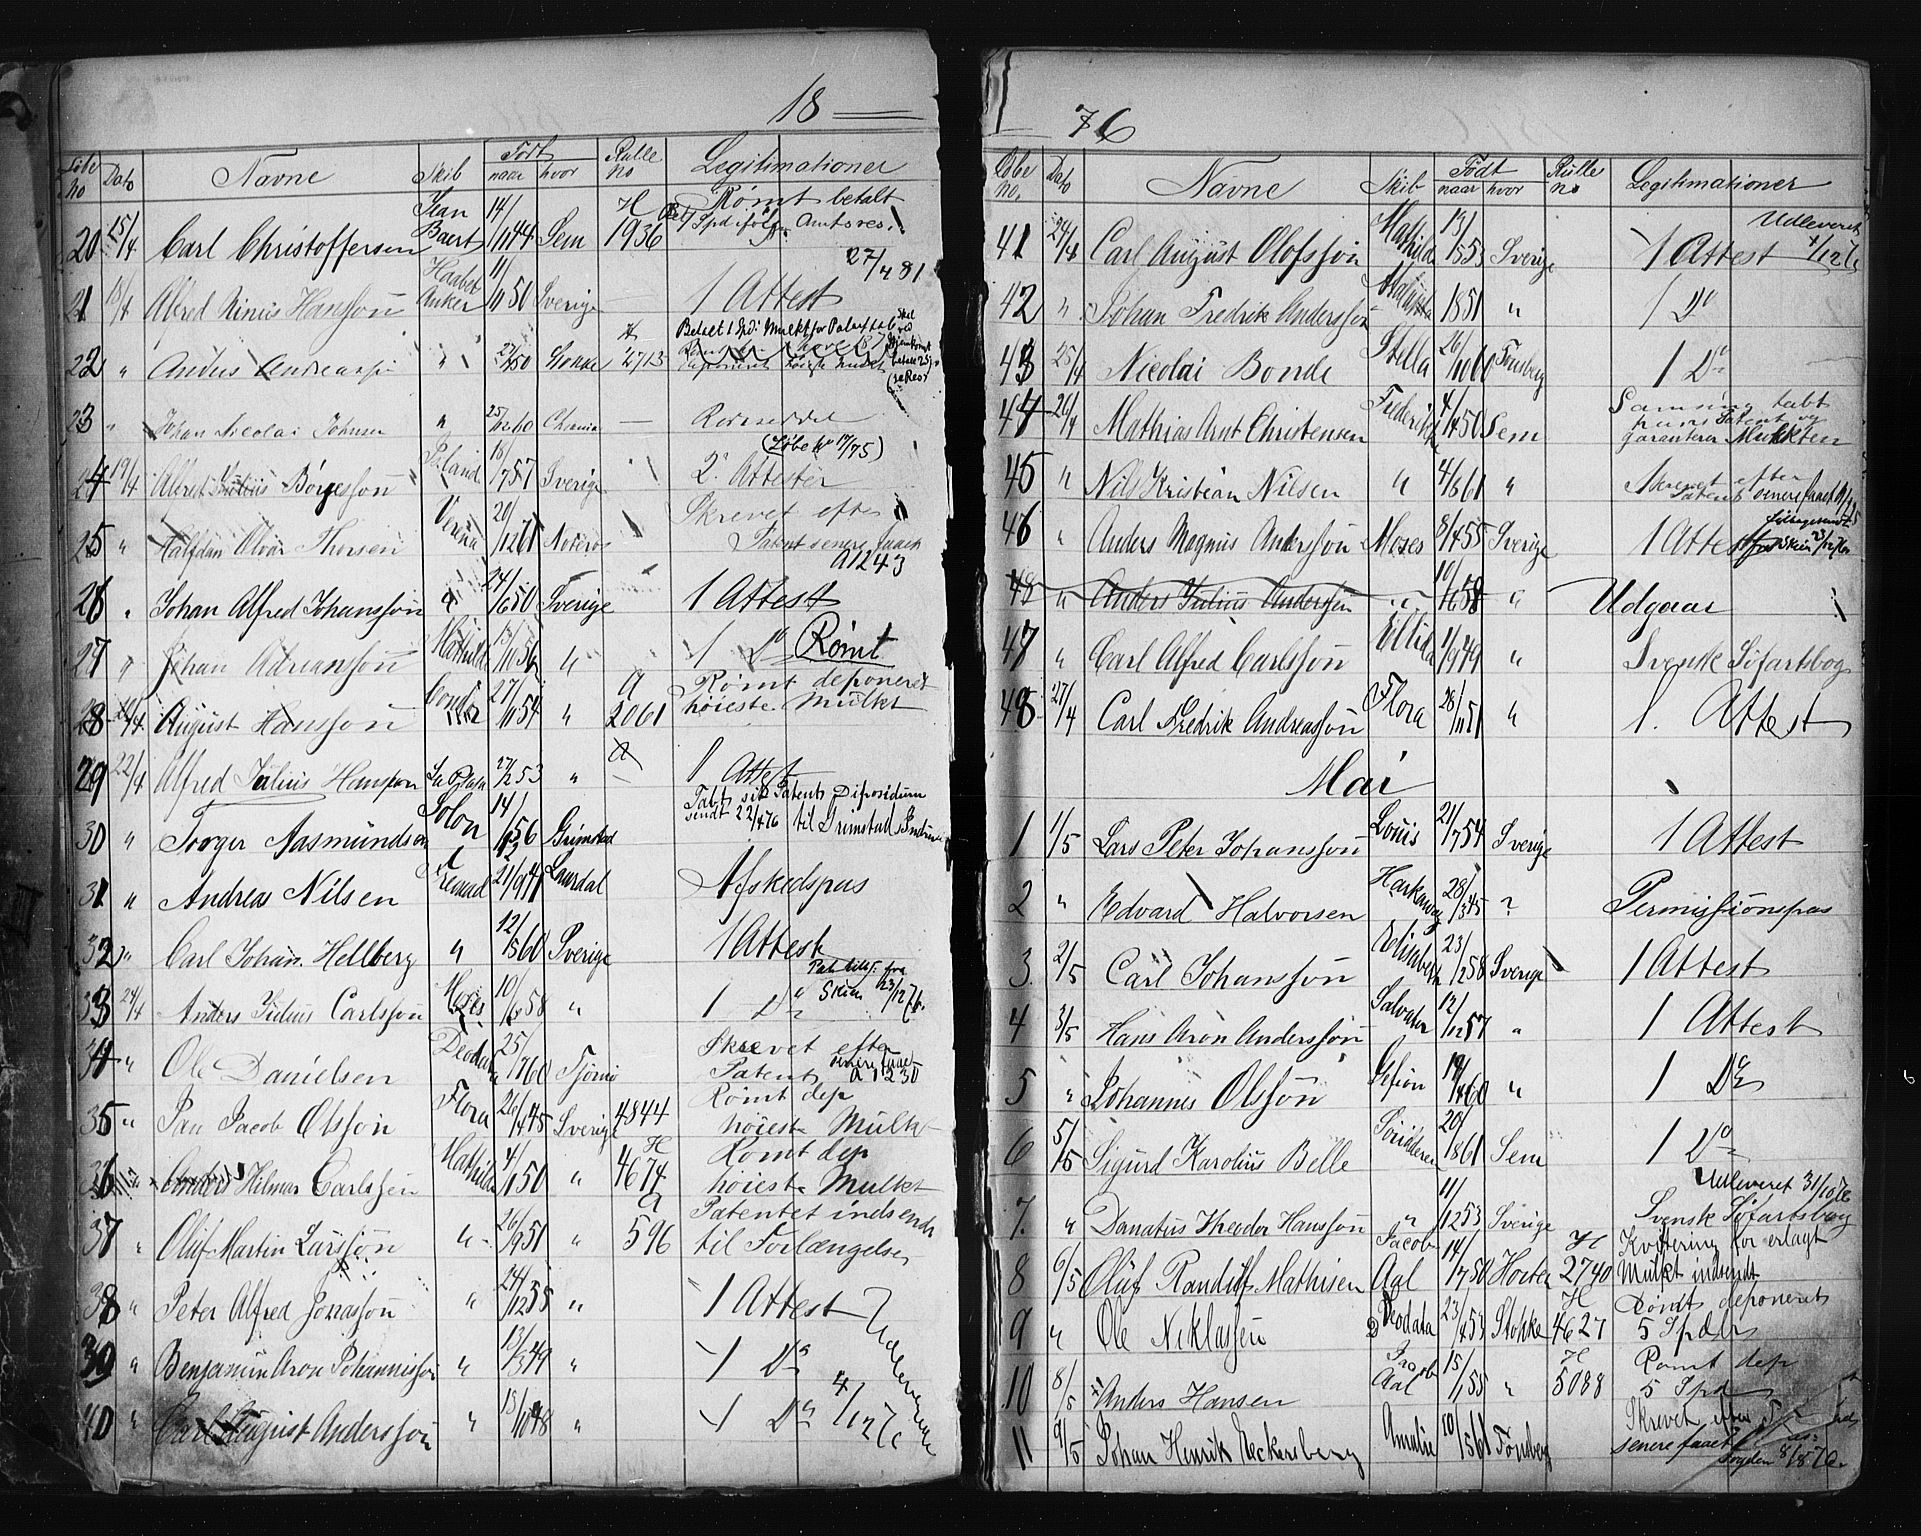 18
Løbe No Dato Navne Skib Født naar hvor Rulle No Legitimationer
20 15/4 Carl Christoffersen Jean Baert 14/11 44 Sem H 1936 Rømt betalt Amtsres. 27/4 81
21 18/4 Alfred Rinius Hansson Haabet Anker 11/11 50 Sverige — 1 Attest
22 " Anders Andreassen " 27/ 50 Stokke 2713 Betalt 1 Spd i Mulkt for høieste Mulkt
23 " Johan Nicolai Johnsen " 25/12 60 —
24 19/4 Alfred Julius Börgesson 18/7 57 Sverige 2 Attester (Løbe No 17/75)
25 " Halfdan Olvar Thorsen Verena 20/12 61 Nøterø Skrevet efter Patent senere faaet A1243
26 " Johan Alfred Johansson " 24/6 50 Sverige 1 Attest
27 " Johan Adriansson Mathilde 13/10 56 " 1 Do Rømt
28 20/4 August Hansson Condor 27/11 54 " A 2061 Rømt deponeret høieste Mulkt
29 22/4 Alfred Julius Hansson La Plata 27/2 53 " a — 1 Attest
30 " Torger Aasmundsen Solon 14/ 56 Grimstad Tabt sit Patent sendt 22/4 76 til Grimstad
31 " Andreas Nilsen 21/9 41 Laurdal Afskedspas
32 " Carl Johan Hellberg " 12/8 60 Sverige 1 Attest
33 24/4 Anders Julius Carlsson Moses 10/6 58 " 1 Do Skien 23/12 76.
34 " Ole Danielsen Deodata 25/7 60 Tjømø Skrevet efter Patent senere faaet A 1230
35 " Jan Jacob Olsson Flora 26/4 45 Sverige 4844 Rømt dep høieste Mulkt
36 " Anders Hilmar Carlsson Mathilde 4/11 50 " H 4674 Rømt dep høieste Mulkt
37 " Oluf Martin Larsson " 26/9 51 " a 596 Patentet indsendt til Forlængelse
38 " Peter Alfred Jonasson " 24/12 55 " 1 Attest
39 " Benjamin Aron Johannisson " 13/3 49 " 1 Do
40 " Carl August Andersson " 13/10 48 " 1 Do Udleverede 4/12 76
76
Løbe No. Dato Navne Skib Født naar hvor Rulle No Legitimationer
41 24/4 Carl August Olofsson Mathilde 19/1 53 Sverige 1 Attest Udleveret 4/12 76
42 " Johan Fredrik Andersson Augusta 1851 " 1 Do
43 25/4 Nicolai Bonde Stella 26/10 60 Tønsberg 1 Do
44 26/4 Mathias Arnt Christensen Frederikke 4/4 50 Sem tabt hans Patent og garanterer Mulkten
45 " Nils Kristian Nilsen " 4/8 61 " Skrevet efter Patent senere faaet
46 " Anders Magnus Andersson Moses 8/4 55 Sverige 1 Attest Skien 23/12 76
48 " Anders Julius Andersson " 10/6 58 " Udgaar
47 " Carl Alfred Carlsson Eltida 1/9 49 " Svensk Søfartsbog
48 27/4 Carl Fredrik Andreasson Flora 28/11 51 " 1. Attest
Mai
1 1/5 Lars Peter Johansson Louis 21/7 54 Sverige 1 Attest
2 " Edvard Halvorsen Harkaway 28/3 45 ? Permissionspas
3. 2/5 Carl Johansson Elisabeth 23/12 58 Sverige 1 Attest
4 3/5 Hans Aron Andersson Salvator 12/12 57 " 1 Attest
5 " Johannes Olsson Gefion 19/4 60 " 1 Do
6 5/5 Sigurd Karolius Belle 20/1 861 Sem 1 Do
7. " Danatus Theodor Hansson " 11/12 53 Sverige Udleveret 31/10 76 Svensk Søfartsbog
8 6/5 Oluf Randulf Mathisen Jacob Aal 14/7 50 Horten H 2740 Kvittering for erlagt Mulkt indsendt
9 " Ole Niklassen Deodata 23/4 53 Stokke H 4627 Rømt deponeret 5 Spdlr
10 8/5 Anders Hansen Jacob Aal 15/1 55 " H 5088 Rømt dep 5 Spd
11 9/5 Johan Henrik Neckersberg Amalie 10/5 61 Tønsberg Skrevet efter senere faaet 8/5 76